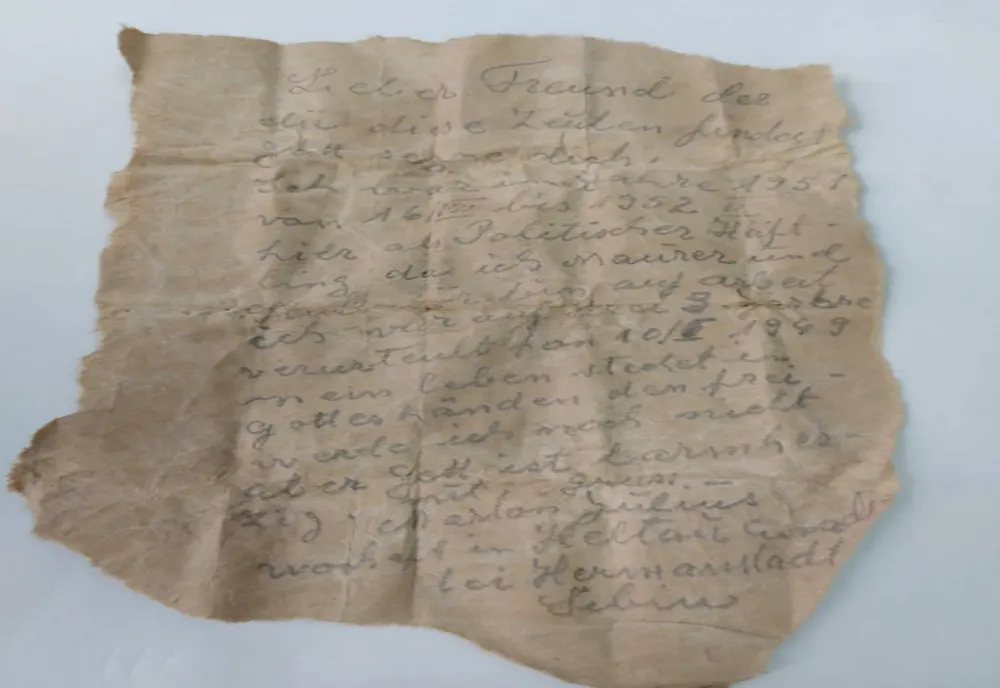 Lieber Freund der
du diese Zeilen findest
Gott segne dich.
Ich war im Jahre 1951
von 16/VII bis 1952
hier als Politischer Häft-
ling da ich Maurer und
auf arbeit
ich war auf 3 Jahre
verurteilt von 10/II 1949
mein leben stehet in
gottes händen den frei
werde ich noch nicht
aber Gott ist barmher-
zig. mit gruss.-
Julius
wohaft in Heltau
bei Hermanstadt
Sibiu